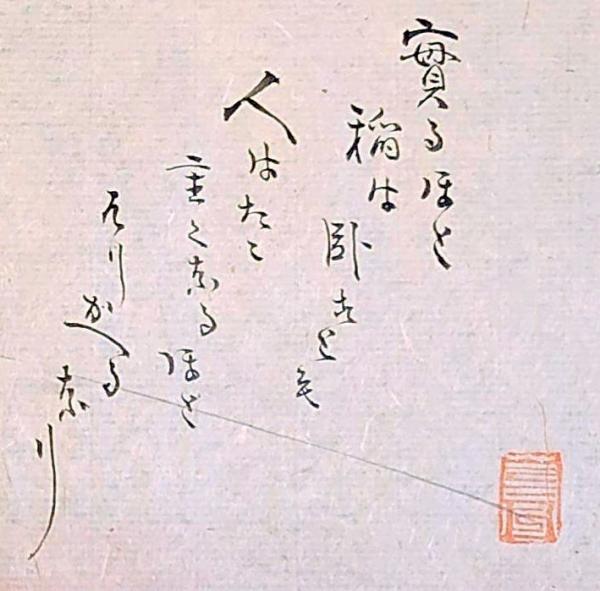 實るほと
稲は
卧すとも
人はたゝ
重くなるほと
そりかへる
なり